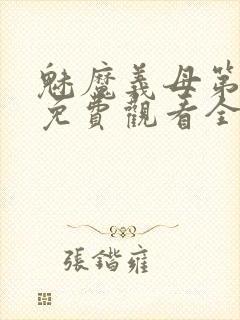 魅魔義母第
免費觀看全
張鍇雍